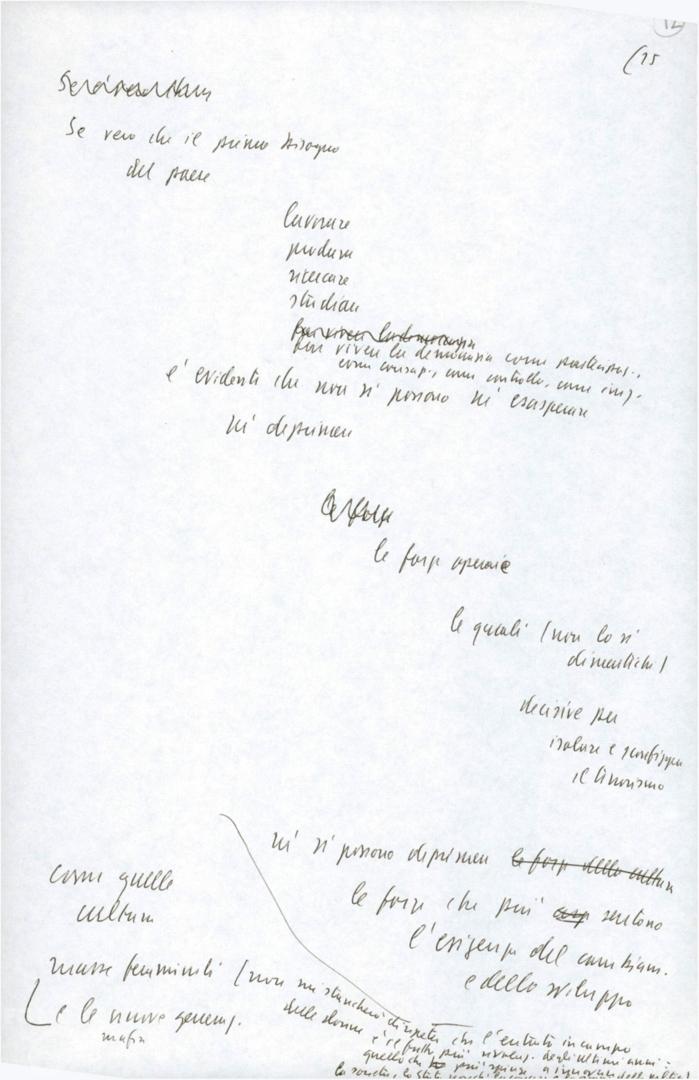 12
(15
Se vero che il primo bisogno
del paese
lavorare
produrre
ricercare
studiare
far vivere la democrazia
far vivere la democrazia come partecipaz.,
come consap., come controllo, come
e' evidente che non si possono né esasperare
né deprimere
Le forze
le forze operaie
le quali (non lo si
dimentichi)
decisive per
isolare e sconfiggere
il terrorismo
né si possono deprimere le forze della cultura
le forze che più sentono
l'esigenza del cambiam.
e dello sviluppo
come quelle
cultura
masse femminili (non mi stancherò di ripetere che l'entrata in campo
delle donne è il fatto più rivoluz. degli ultimi anni -
quello che più
e le nuove generaz.
mafia
la società, lo Stato